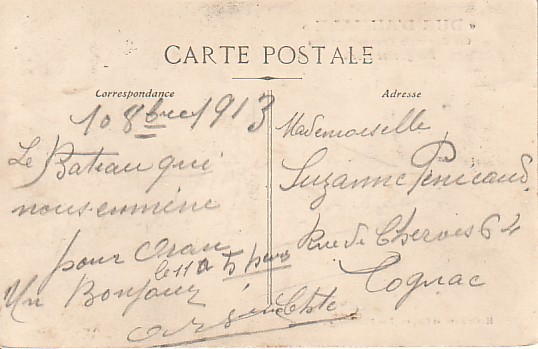 CARTE POSTALE
Correspondance
10 8bre 1913
Le Bateau qui
nous emmène
pour Oran
le 11 à 5 heures
Un Bonjour
Adresse
Mademoiselle
Suzanne Penicaud
Rue de Cherves 64
Cognac